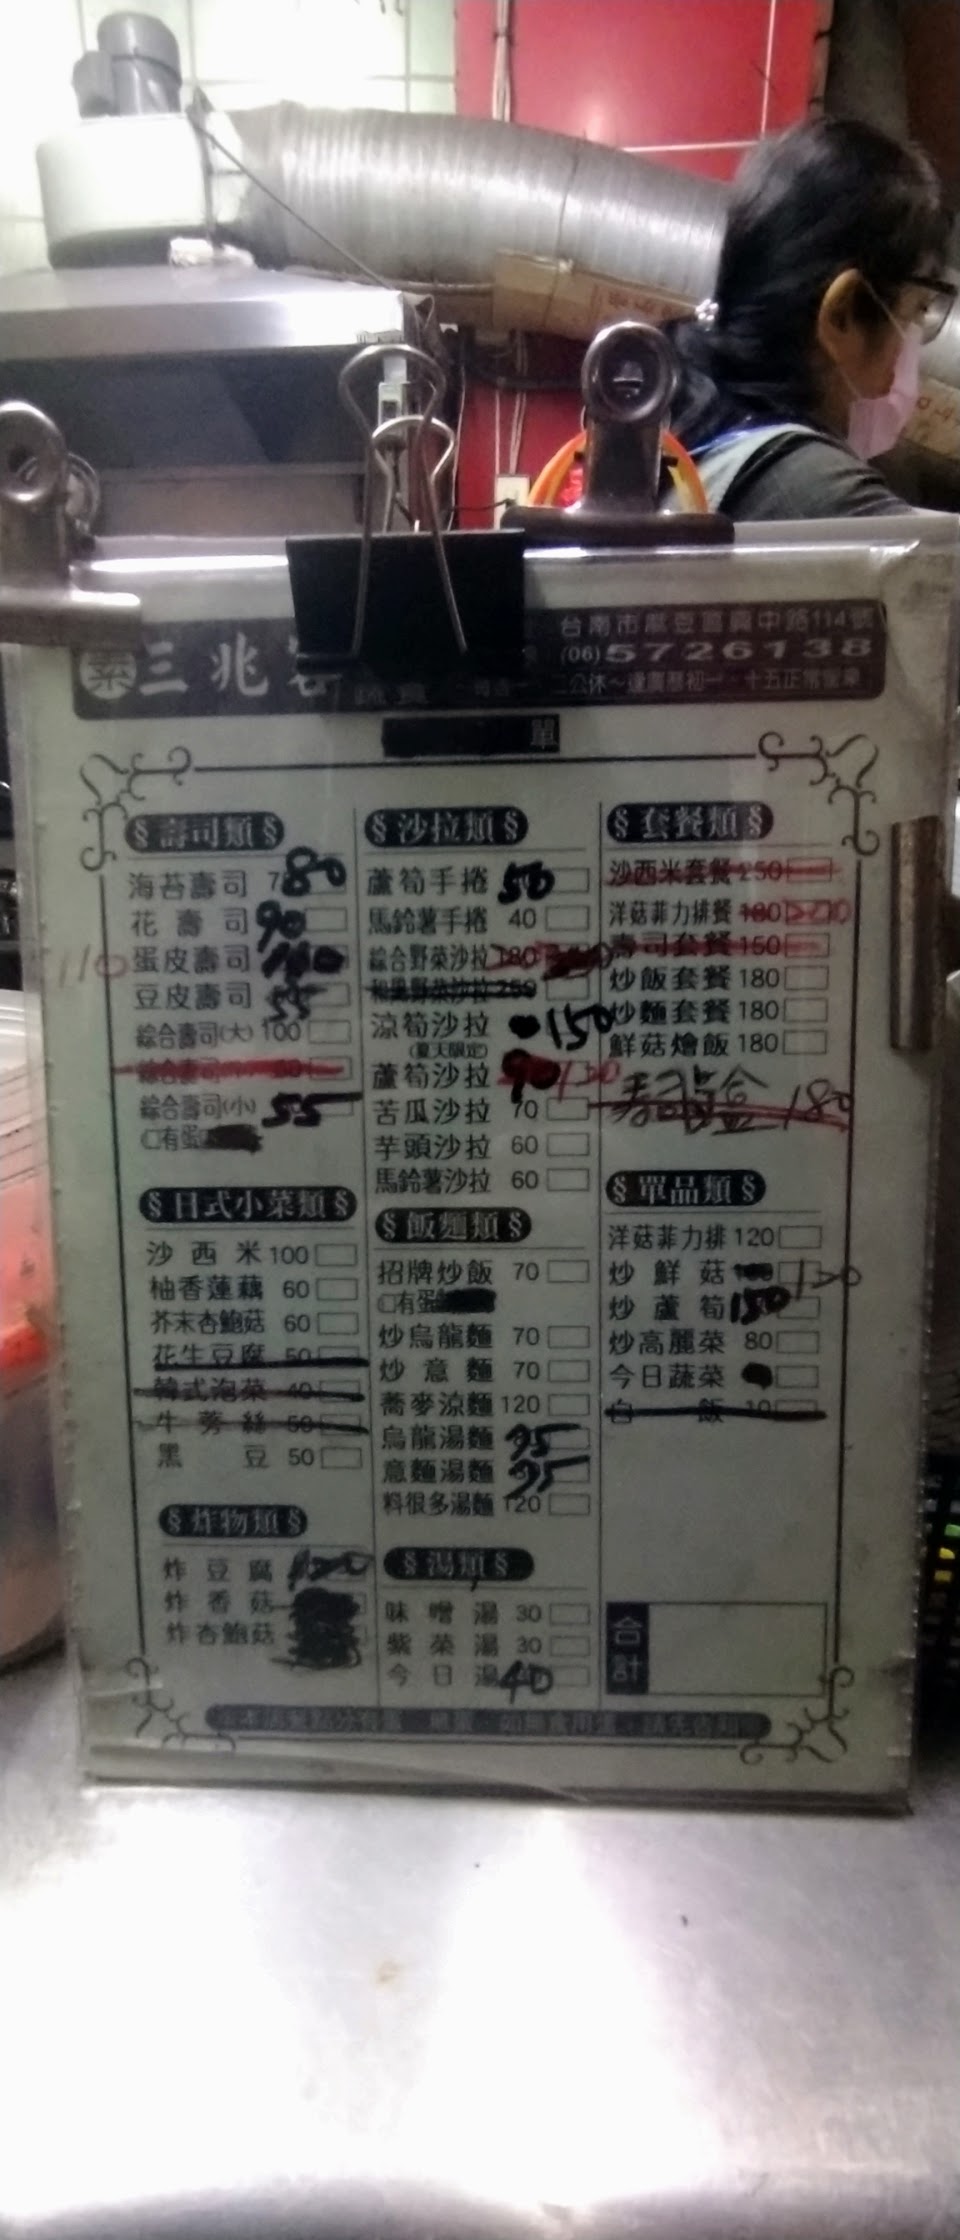 素 三兆客
蔬食
台南市麻豆區興中路114號
(06)5726138
二公休～逢農曆初一、十五正常營業
單
§壽司類§
海苔壽司 80
花壽司 90
蛋皮壽司 110
豆皮壽司 55
綜合壽司(大) 100
綜合壽司(小) 55
□有蛋
§日式小菜類§
沙西米 100
柚香蓮藕 60
芥末杏鮑菇 60
花生豆腐 50
韓式泡菜 40
牛蒡絲 50
黑豆 50
§炸物類§
炸豆腐 120
炸香菇
炸杏鮑菇
§沙拉類§
蘆筍手捲 50
馬鈴薯手捲 40
綜合野菜沙拉 180
和風野菜沙拉 250
涼筍沙拉 150
(夏天限定)
蘆筍沙拉 90 120
苦瓜沙拉 70
芋頭沙拉 60
馬鈴薯沙拉 60
§飯麵類§
招牌炒飯 70
□有蛋
炒烏龍麵 70
炒意麵 70
蕎麥涼麵 120
烏龍湯麵 95
意麵湯麵 95
料很多湯麵 120
§湯類§
味噌湯 30
紫菜湯 30
今日湯 40
§套餐類§
沙西米套餐 250
洋菇菲力排餐 180 200
壽司套餐 150
炒飯套餐 180
炒麵套餐 180
鮮菇燴飯 180
壽司 盒 180
§單品類§
洋菇菲力排 120
炒鮮菇 120
炒蘆筍 150
炒高麗菜 80
今日蔬菜
白飯 10
合計